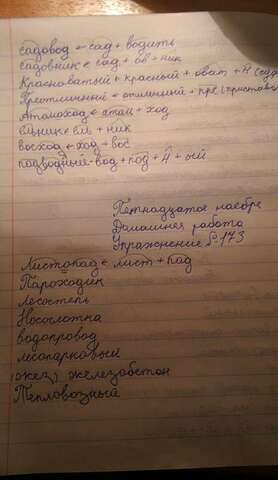 садовод ← сад + водить
садовник ← сад + ов + ник
Красноватый ← красный + оват +
Претличный ← отличный + пре (приставка
Атомоход ← атом + ход
ельник ← ель + ник
восход ← ход + вос
подводный - вод + под + Н + ый
Петнадцатое ноебре
Дамашнея работа
Упражнение №173
Листопад ← лист + пад
Пароходик
лесостепь
Носоглотка
водопровод
лесопарковый
железобетон
Тепловозный